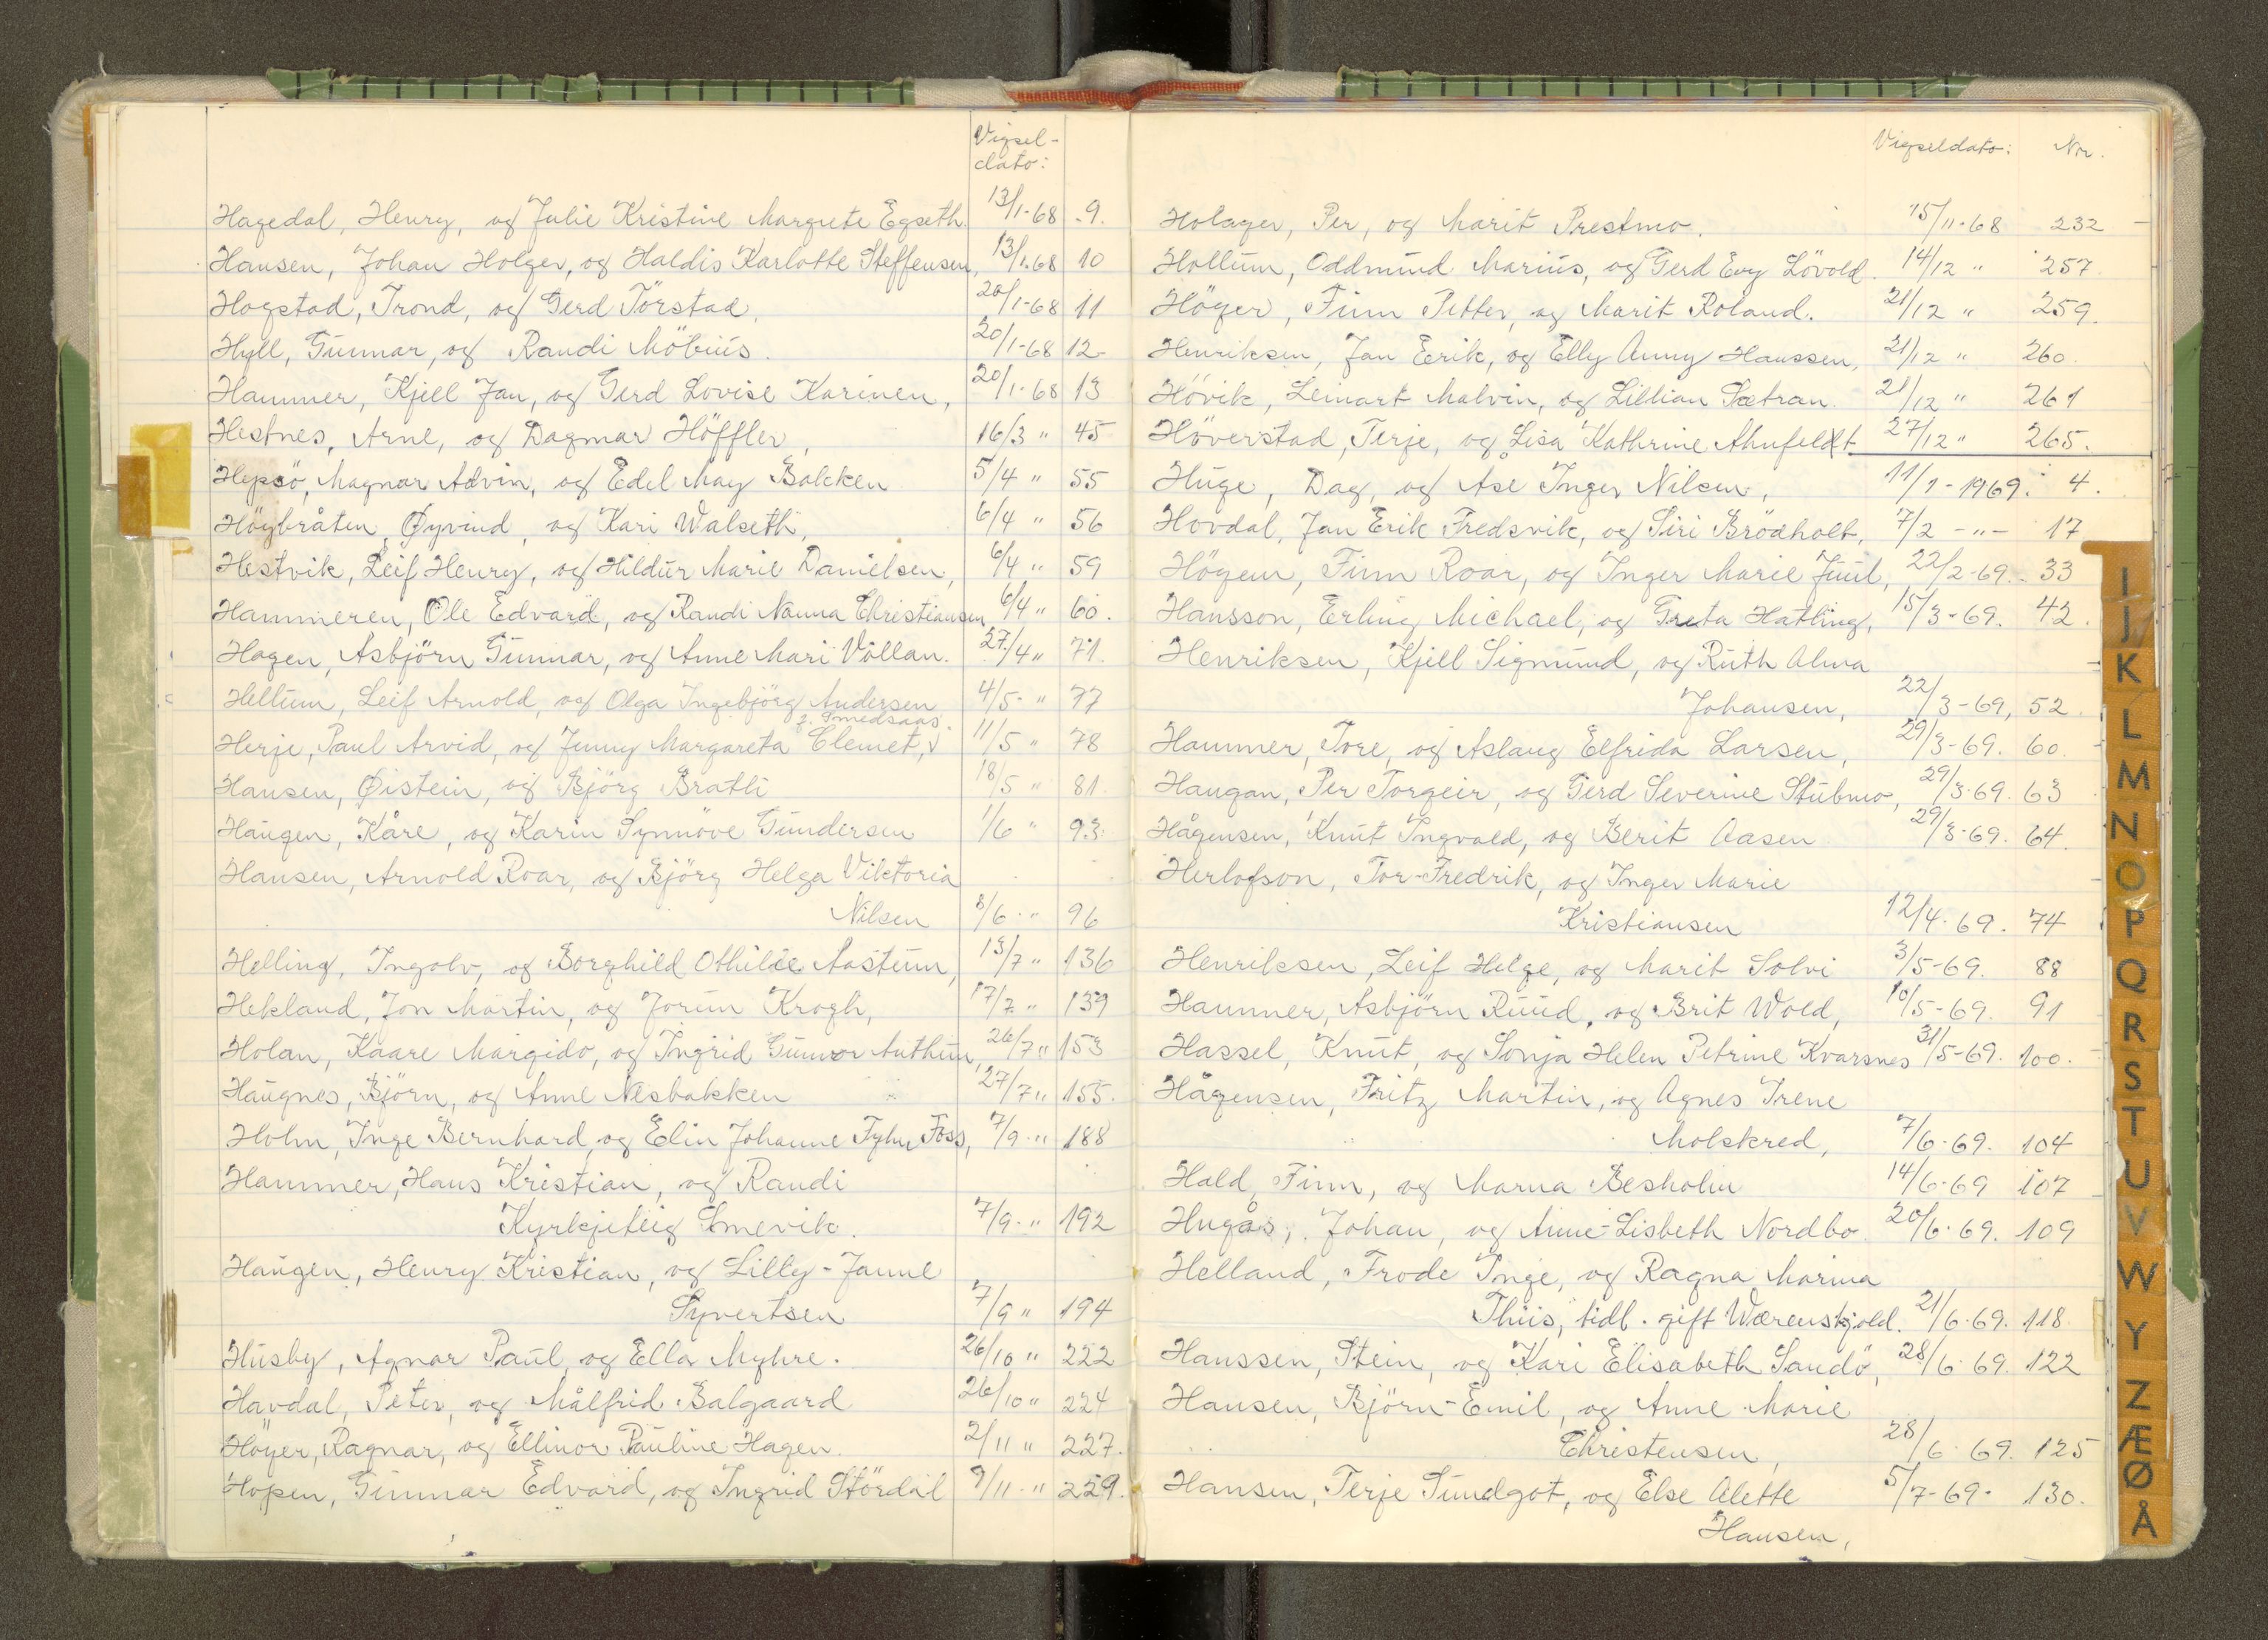 Vigsel-
dato:
Hagedal, Henry, og Julie Kristine Margrete Egseth. 13/1-68 9.
Hansen, Johan Holger, og Haldis Karlotte Steffensen, 13/1.68 10
Hogstad, Trond, og Gerd Törstad, 20/1-68 11
Hyll, Gunnar, og Randi Möbius. 20/1-68 12
Hammer, Kjell Jan, og Gerd Lovise Karinen, 20/1-68 13
Hestnes, Arne, og Dagmar Höffler, 16/3 " 45
Hepsö, Magnar Advin, og Edel May Bakken 5/4 " 55
Höybråten, Øyvind, og Kari Walseth, 6/4 " 56
Hestvik, Leif Henry, og Hildur Marie Danielsen, 6/4 " 59
Hammeren, Ole Edvard, og Randi Nanna Christiansen, 6/4 " 60.
Hagen, Asbjörn Gunnar, og Anne Mari Vollan. 27/4 " 71.
Hellum, Leif Arnold, og Olga Ingebjörg Andersen 4/5- " 77
f. Smedsaas
Herje, Paul Arvid, og Jenny Margareta Clemet, 11/5 " 78
Hansen, Øistein, og Björg Bratli 18/5 " 81.
Haugen, Kåre, og Karin Synnöve Gundersen 1/6 " 93.
Hansen, Arnold Roar, og Björg Helga Viktoria
Nilsen 8/6 " 96
Helling, Ingolv, og Borghild Othilie Aastum, 13/7 " 136
Hekland, Jon Martin, og Jorun Krogh, 17/7 " 139
Holan, Kaare Margido, og Ingrid Gunvor Authun, 26/7 " 153
Haugnes, Björn, og Anne Nesbakken 27/7 " 155.
Holm, Inge Bernhard, og Elin Johanne Tyhn Foss, 7/9 " 188
Hammer, Hans Kristian, og Randi
Kyrkjeteig Smevik. 7/9 " 192
Haugen, Henry Kristian, og Lilly-Janne
Syvertsen 7/9 " 194
Husby, Agnar Paul, og Ella Myhre. 26/10 " 222
Havdal, Peter, og Målfrid Balgaard 26/10 " 224
Höyer, Ragnar, og Ellinor Pauline Hagen. 2/11 " 227.
Hopen, Gunnar Edvard, og Ingrid Stördal 9/11 " 229.
Vigseldato: Nr.
Holager, Per, og Marit Prestmo. 15/11-68 232
Hollum, Oddmund Marius, og Gerd Evy Lövold. 14/12 " 257.
Höyer, Finn Petter, og Marit Roland. 21/12 " 259.
Henriksen, Jan Eerik, og Elly Anny Hanssen, 21/12 " 260.
Hövik, Leinart Malvin, og Lillian Sætran. 21/12 " 261
Höverstad, Terje, og Lisa Kathrine Ahnfeldt 27/12 " 265.
Huge, Dag, og Åse Inger Nilsen, 11/1-1969. 4.
Hovdal, Jan Erik Fredsvik, og Siri Brödholt, 7/2 -"- 17
Högem, Finn Roar, og Inger Marie Juul, 22/2-69. 33
Hansson, Erling Michael, og Greta Hatling, 15/3-69. 42.
Henriksen, Kjell Sigmund, og Ruth Alma
Johansen, 22/3-69, 52
Hammer, Tore, og Aslaug Elfrida Larsen, 29/3-69. 60
Haugan, Per Torgeir, og Gerd Severine Stubmo, 29/3-69. 63
Hågensen, Knut Ingvald, og Berit Aasen 29/3-69. 64.
Herlofson, Tor-Fredrik, og Inger Marie
Kristiansen 12/4-69. 74
Henriksen, Leif Helge, og Marit Solvi 3/5-69. 88
Hammer, Asbjörn Ruud, og Brit Wold, 10/5-69. 91
Hassel, Knut, og Sonja Helen Petrine Kvarsnes 31/5-69. 100.
Hågensen, Fritz Martin, og Agnes Irene
Molskred, 7/6-69. 104
Hald, Finn, og Marna Besholm 14/6-69 107
Hugås, Johan, og Anne-Lisbeth Nordbo 20/6-69. 109
Helland, Frode Inge, og Ragna Marina
Thiis, tidl. gift Wærenskjold. 21/6-69. 118.
Hanssen, Stein, og Kari Elisabeth Sandö, 28/6-69. 122
Hansen, Björn-Emil, og Anne Marie
Christensen, 28/6-69. 125
Hansen, Terje Sundgot, og Else Alette 5/7-69. 130.
Hansen,
I
J
K
L
M
N
O
P
Q
R
S
T
U
V
W
Y
Z
Æ
Ø
Å